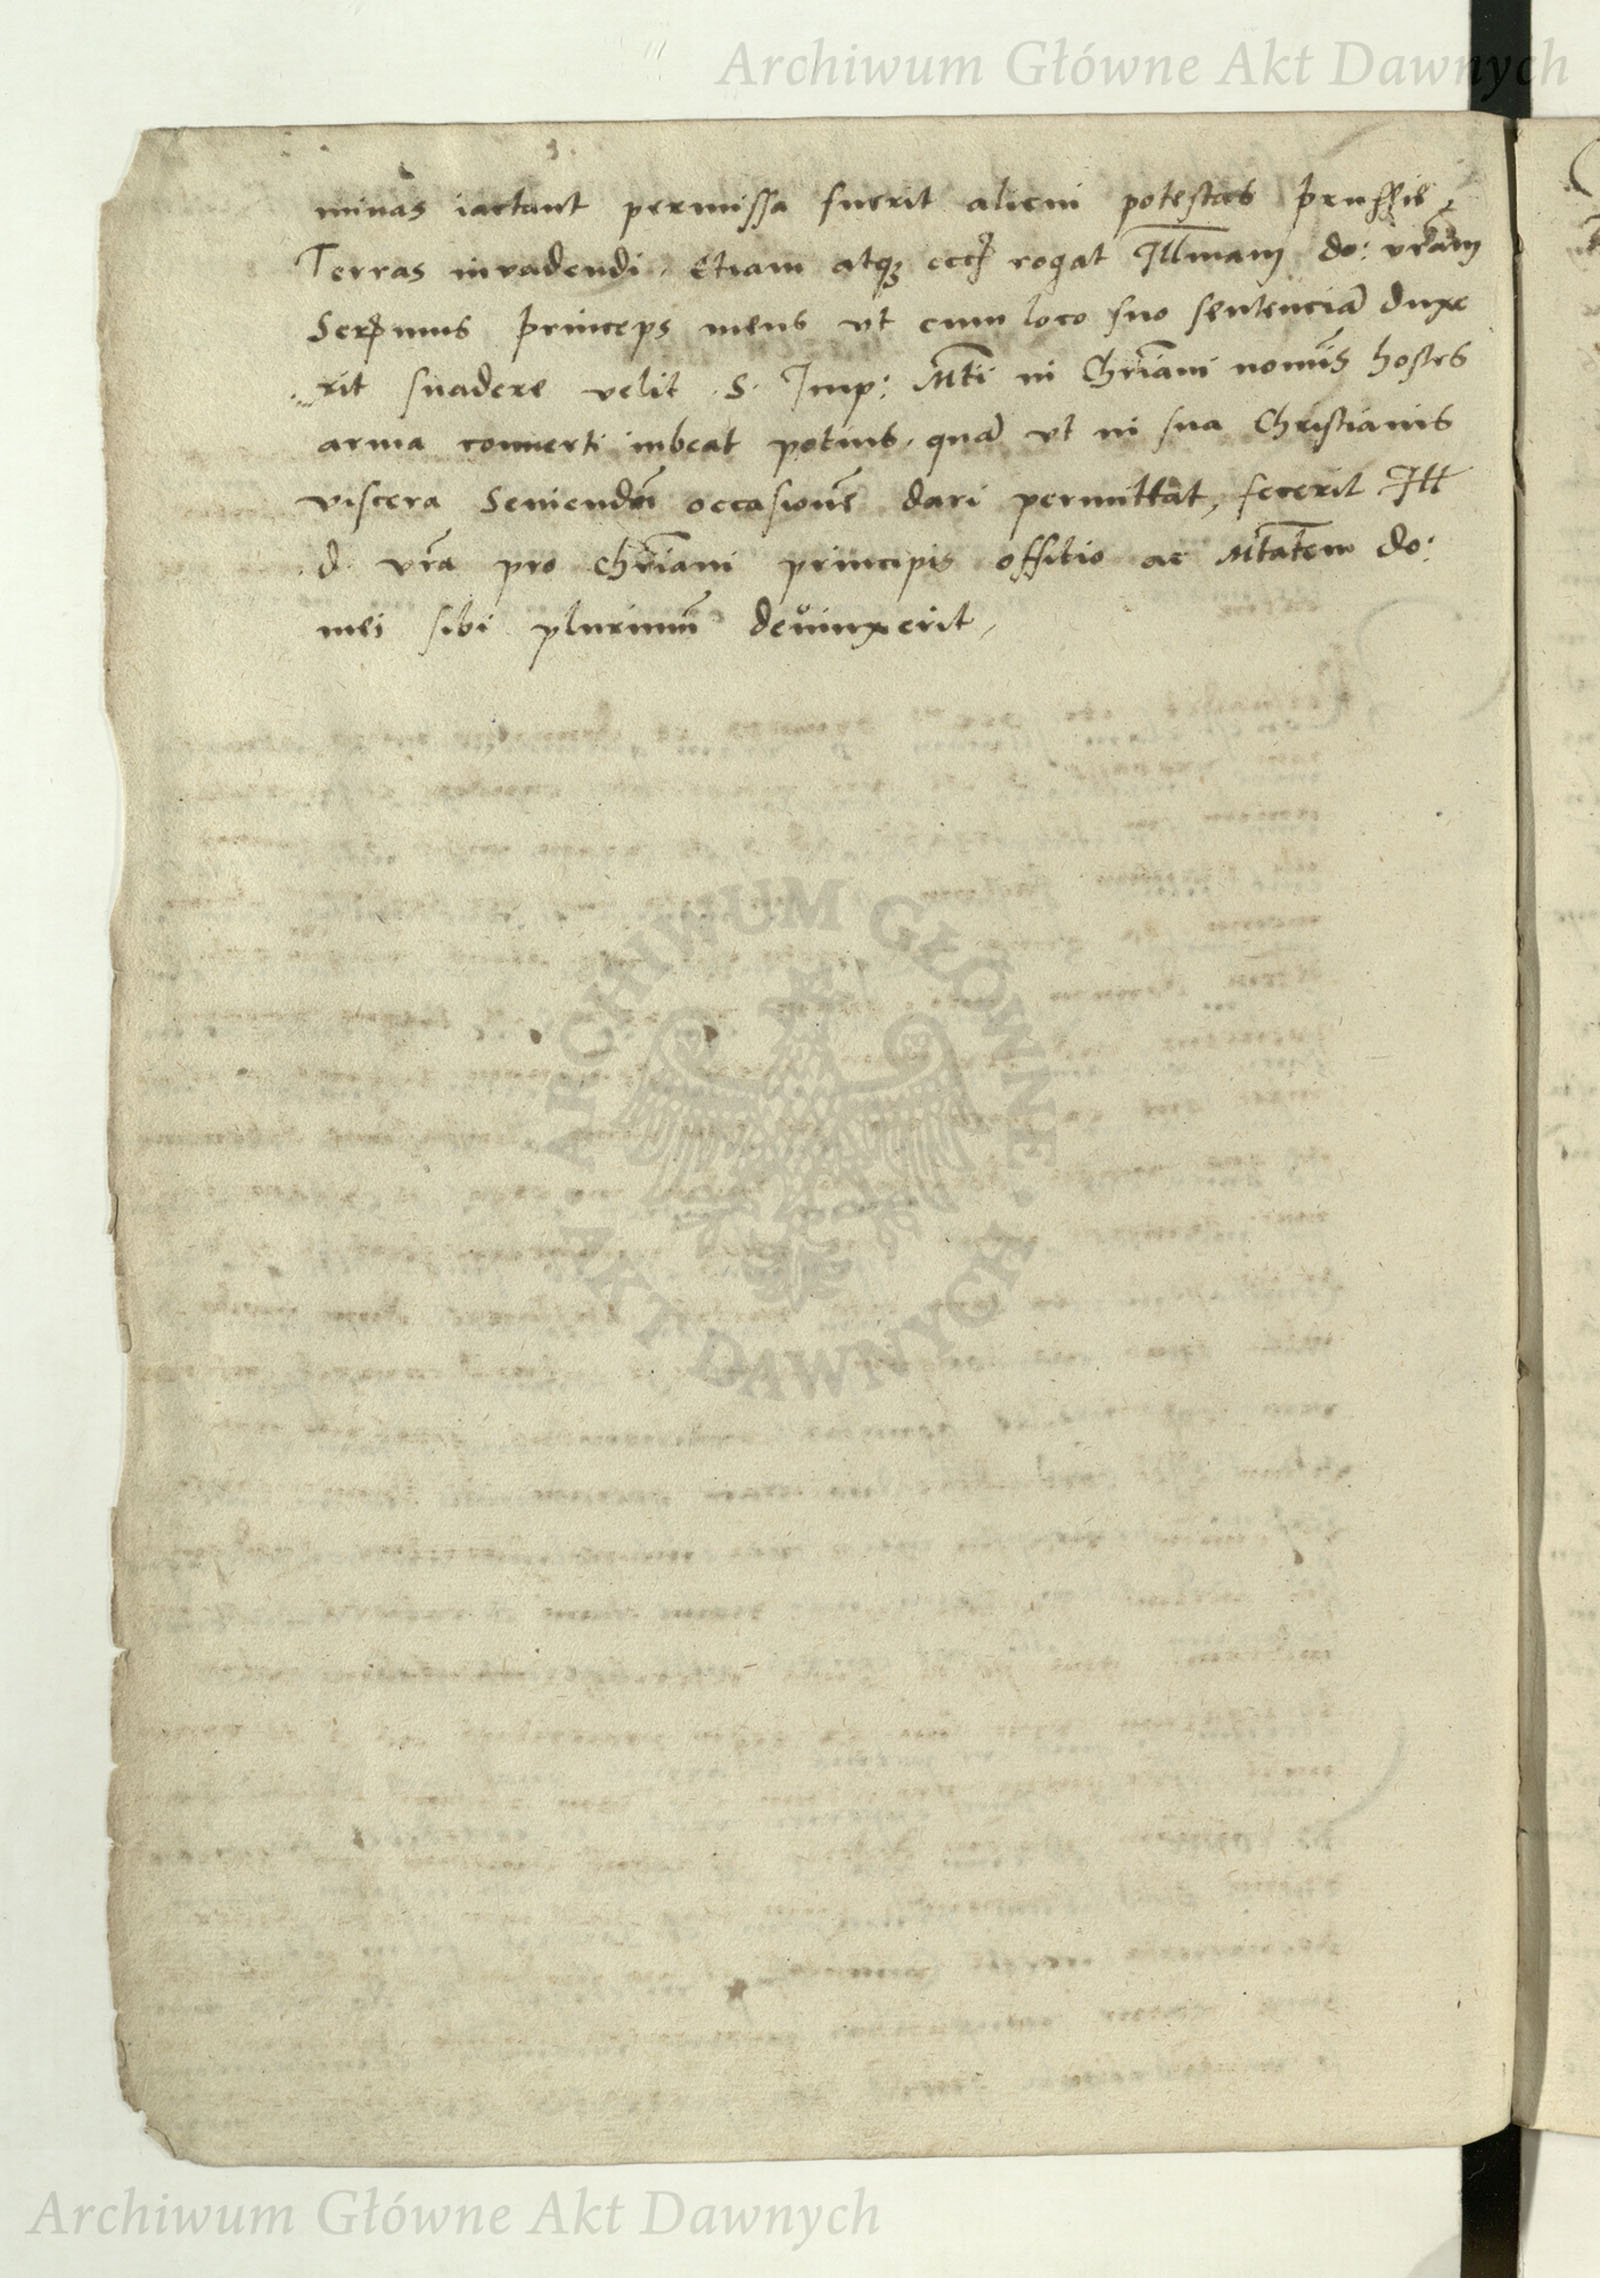 Archiwum Główne Akt Dawnych
minas iactant permissa fuerit alicui potestas prussie
Terras invadendi, Etiam atq3 rogat Illmam do: vrām
princeps meus vt cum loco suo sentenciā duxe
rit suadere velit S. Imp: Mti in Chriani nomīs hostes
arma conuerti iubeat potius, quā vt in sua Christianis
viscera occasionē dari permittat, fecerit Ill
d. vrā pro Chriani principis offitio ac Mtatem do:
mei sibi plurimū deuinxerit,
ARCHIWUM GŁÓWNE AKT DAWNYCH
Archiwum Główne Akt Dawnych